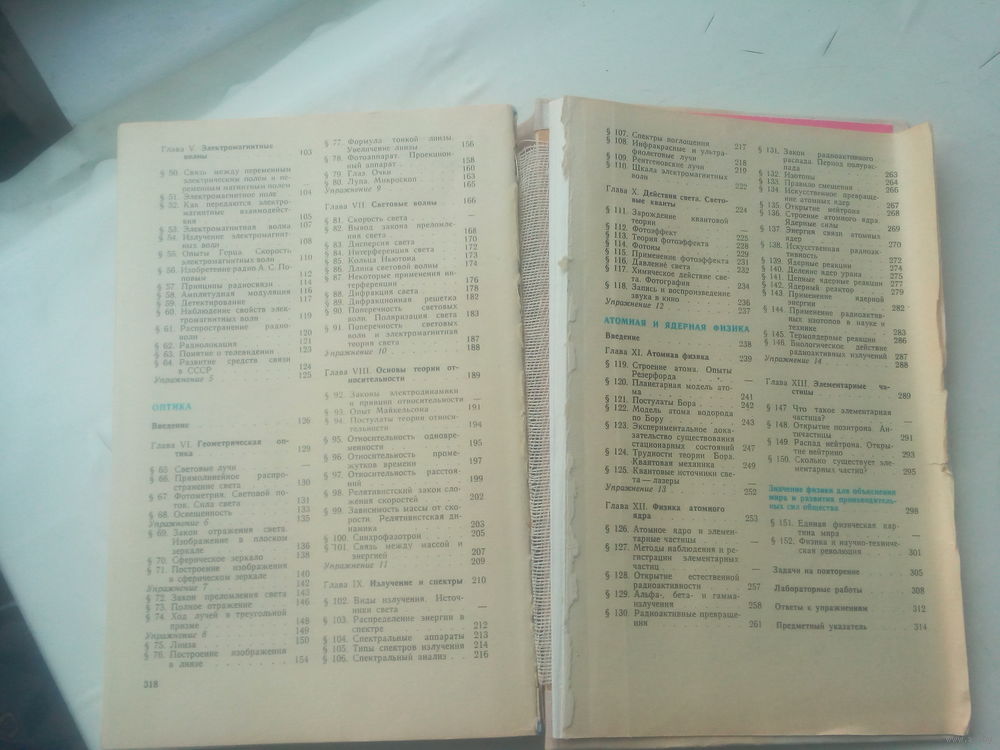 Глава V. Электромагнитные
волны . . . . . 103
§ 50. Связь между переменным
электрическим полем и пе-
ременным магнитным полем —
§ 51. Электромагнитное поле . . 104
§ 52. Как передаются электро-
магнитные взаимодейст-
вия . . . . . 105
§ 53. Электромагнитная волна 107
§ 54. Излучение электромагнит-
ных волн . . . . . 108
§ 55. Опыты Герца. Скорость
электромагнитных волн . . 110
§ 56. Изобретение радио А. С. По-
повым . . . . . 112
§ 57. Принципы радиосвязи . . 114
§ 58. Амплитудная модуляция 116
§ 59. Детектирование . . . . . 117
§ 60. Наблюдение свойств элек-
тромагнитных волн . . . . 119
§ 61. Распространение радио-
волн . . . . . 120
§ 62. Радиолокация . . . . . 121
§ 63. Понятие о телевидении . . 123
§ 64. Развитие средств связи
в СССР . . . . . 124
Упражнение 5 . . . . . 125
ОПТИКА
Введение . . . . . 126
Глава VI. Геометрическая оп-
тика . . . . . 129
§ 65. Световые лучи . . . . . —
§ 66. Прямолинейное распро-
странение света . . . . . 130
§ 67. Фотометрия. Световой по-
ток. Сила света . . . . . 131
§ 68. Освещенность . . . . . 133
Упражнение 6 . . . . . 135
§ 69. Закон отражения света.
Изображение в плоском
зеркале . . . . . 136
§ 70. Сферическое зеркало . . 138
§ 71. Построение изображения
в сферическом зеркале . . 140
Упражнение 7 . . . . . 142
§ 72. Закон преломления света 143
§ 73. Полное отражение . . . . 146
§ 74. Ход лучей в треугольной
призме . . . . . 148
Упражнение 8 . . . . . 149
§ 75. Линза . . . . . 150
§ 76. Построение изображения
в линзе . . . . . 154
318
§ 77. Формула тонкой линзы.
Увеличение линзы . . . . 156
§ 78. Фотоаппарат. Проекцион-
ный аппарат . . . . . 158
§ 79. Глаз. Очки . . . . . 160
§ 80. Лупа. Микроскоп . . . . 163
Упражнение 9 . . . . . 165
Глава VII. Световые волны . . 166
§ 81. Скорость света . . . . . —
§ 82. Вывод закона преломле-
ния света . . . . . 168
§ 83. Дисперсия света . . . . 170
§ 84. Интерференция света . . 172
§ 85. Кольца Ньютона . . . . 173
§ 86. Длина световой волны . . 174
§ 87. Некоторые применения ин-
терференции . . . . . 176
§ 88. Дифракция света . . . . 178
§ 89. Дифракционная решетка 182
§ 90. Поперечность световых
волн. Поляризация света 183
§ 91. Поперечность световых
волн и электромагнитная
теория света . . . . . 187
Упражнение 10 . . . . . 188
Глава VIII. Основы теории от-
носительности . . . . . 189
§ 92. Законы электродинамики
и принцип относительности —
§ 93. Опыт Майкельсона . . . 191
§ 94. Постулаты теории относи-
тельности . . . . . 194
§ 95. Относительность одновре-
менности . . . . . 195
§ 96. Относительность проме-
жутков времени . . . . . 197
§ 97. Относительность расстоя-
ний . . . . . 199
§ 98. Релятивистский закон сло-
жения скоростей . . . . . 202
§ 99. Зависимость массы от ско-
рости. Релятивистская ди-
намика . . . . . 203
§ 100. Синхрофазотрон . . . . 205
§ 101. Связь между массой и
энергией . . . . . 207
Упражнение 11 . . . . . 209
Глава IX. Излучение и спектры 210
§ 102. Виды излучений. Источ-
ники света . . . . . —
§ 103. Распределение энергии в
спектре . . . . . 212
§ 104. Спектральные аппараты 213
§ 105. Типы спектров излучения 214
§ 106. Спектральный анализ . . 216
§ 107. Спектры поглощения . . 217
§ 108. Инфракрасные и ультра-
фиолетовые лучи . . . . 218
§ 109. Рентгеновские лучи . . 219
§ 110. Шкала электромагнитных
волн . . . . . 222
Глава X. Действия света. Свето-
вые кванты . . . . . 224
§ 111. Зарождение квантовой
теории . . . . . —
§ 112. Фотоэффект . . . . . 225
§ 113. Теория фотоэффекта . . 228
§ 114. Фотоны . . . . . 229
§ 115. Применение фотоэффекта 231
§ 116. Давление света . . . . 232
§ 117. Химическое действие све-
та. Фотография . . . . . —
§ 118. Запись и воспроизведение
звука в кино . . . . . 236
Упражнение 12 . . . . . 237
АТОМНАЯ И ЯДЕРНАЯ ФИЗИКА
Введение . . . . . 238
Глава XI. Атомная физика . . 239
§ 119. Строение атома. Опыты
Резерфорда . . . . . —
§ 120. Планетарная модель ато-
ма . . . . . 241
§ 121. Постулаты Бора . . . . 242
§ 122. Модель атома водорода
по Бору . . . . . 243
§ 123. Экспериментальное дока-
зательство существования
стационарных состояний 247
§ 124. Трудности теории Бора.
Квантовая механика . . 249
§ 125. Квантовые источники све-
та — лазеры . . . . . —
Упражнение 13 . . . . . 252
Глава XII. Физика атомного
ядра . . . . . 253
§ 126. Атомное ядро и элемен-
тарные частицы . . . . . —
§ 127. Методы наблюдения и ре-
гистрации элементарных
частиц . . . . . —
§ 128. Открытие естественной
радиоактивности . . . . 257
§ 129. Альфа-, бета- и гамма-
излучения . . . . . 258
§ 130. Радиоактивные превраще-
ния . . . . . 261
§ 131. Закон радиоактивного
распада. Период полурас-
пада . . . . . 263
§ 132. Изотопы . . . . . 264
§ 133. Правило смещения . . . 266
§ 134. Искусственное превраще-
ние атомных ядер . . . . 267
§ 135. Открытие нейтрона . . . 268
§ 136. Строение атомного ядра.
Ядерные силы . . . . . 269
§ 137. Энергия связи атомных
ядер . . . . . 270
§ 138. Искусственная радиоак-
тивность . . . . . 272
§ 139. Ядерные реакции . . . . 274
§ 140. Деление ядер урана . . 275
§ 141. Цепные ядерные реакции 277
§ 142. Ядерный реактор . . . . 279
§ 143. Применение ядерной
энергии . . . . . 282
§ 144. Применение радиоактив-
ных изотопов в науке и
технике . . . . . 283
§ 145. Термоядерные реакции 286
§ 146. Биологическое действие
радиоактивных излучений 287
Упражнение 14 . . . . . 288
Глава XIII. Элементарные ча-
стицы . . . . . 289
§ 147. Что такое элементарная
частица? . . . . . —
§ 148. Открытие позитрона. Ан-
тичастицы . . . . . 291
§ 149. Распад нейтрона. Откры-
тие нейтрино . . . . . 293
§ 150. Сколько существует эле-
ментарных частиц? . . . . 295
Значение физики для объяснения
мира и развития производитель-
ных сил общества . . . . . 298
§ 151. Единая физическая кар-
тина мира . . . . . —
§ 152. Физика и научно-техниче-
ская революция . . . . . 301
Задачи на повторение . . . . 305
Лабораторные работы . . . . 308
Ответы к упражнениям . . . . 312
Предметный указатель . . . . 314